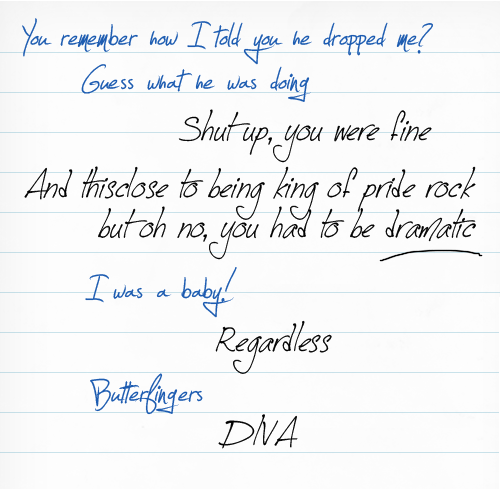 You remember how I told you he dropped me?
Guess what he was doing
Shut up, you were fine
And thisclose to being king of pride rock
but oh no, you had to be dramatic
I was a baby!
Regardless
Butterfingers
DIVA